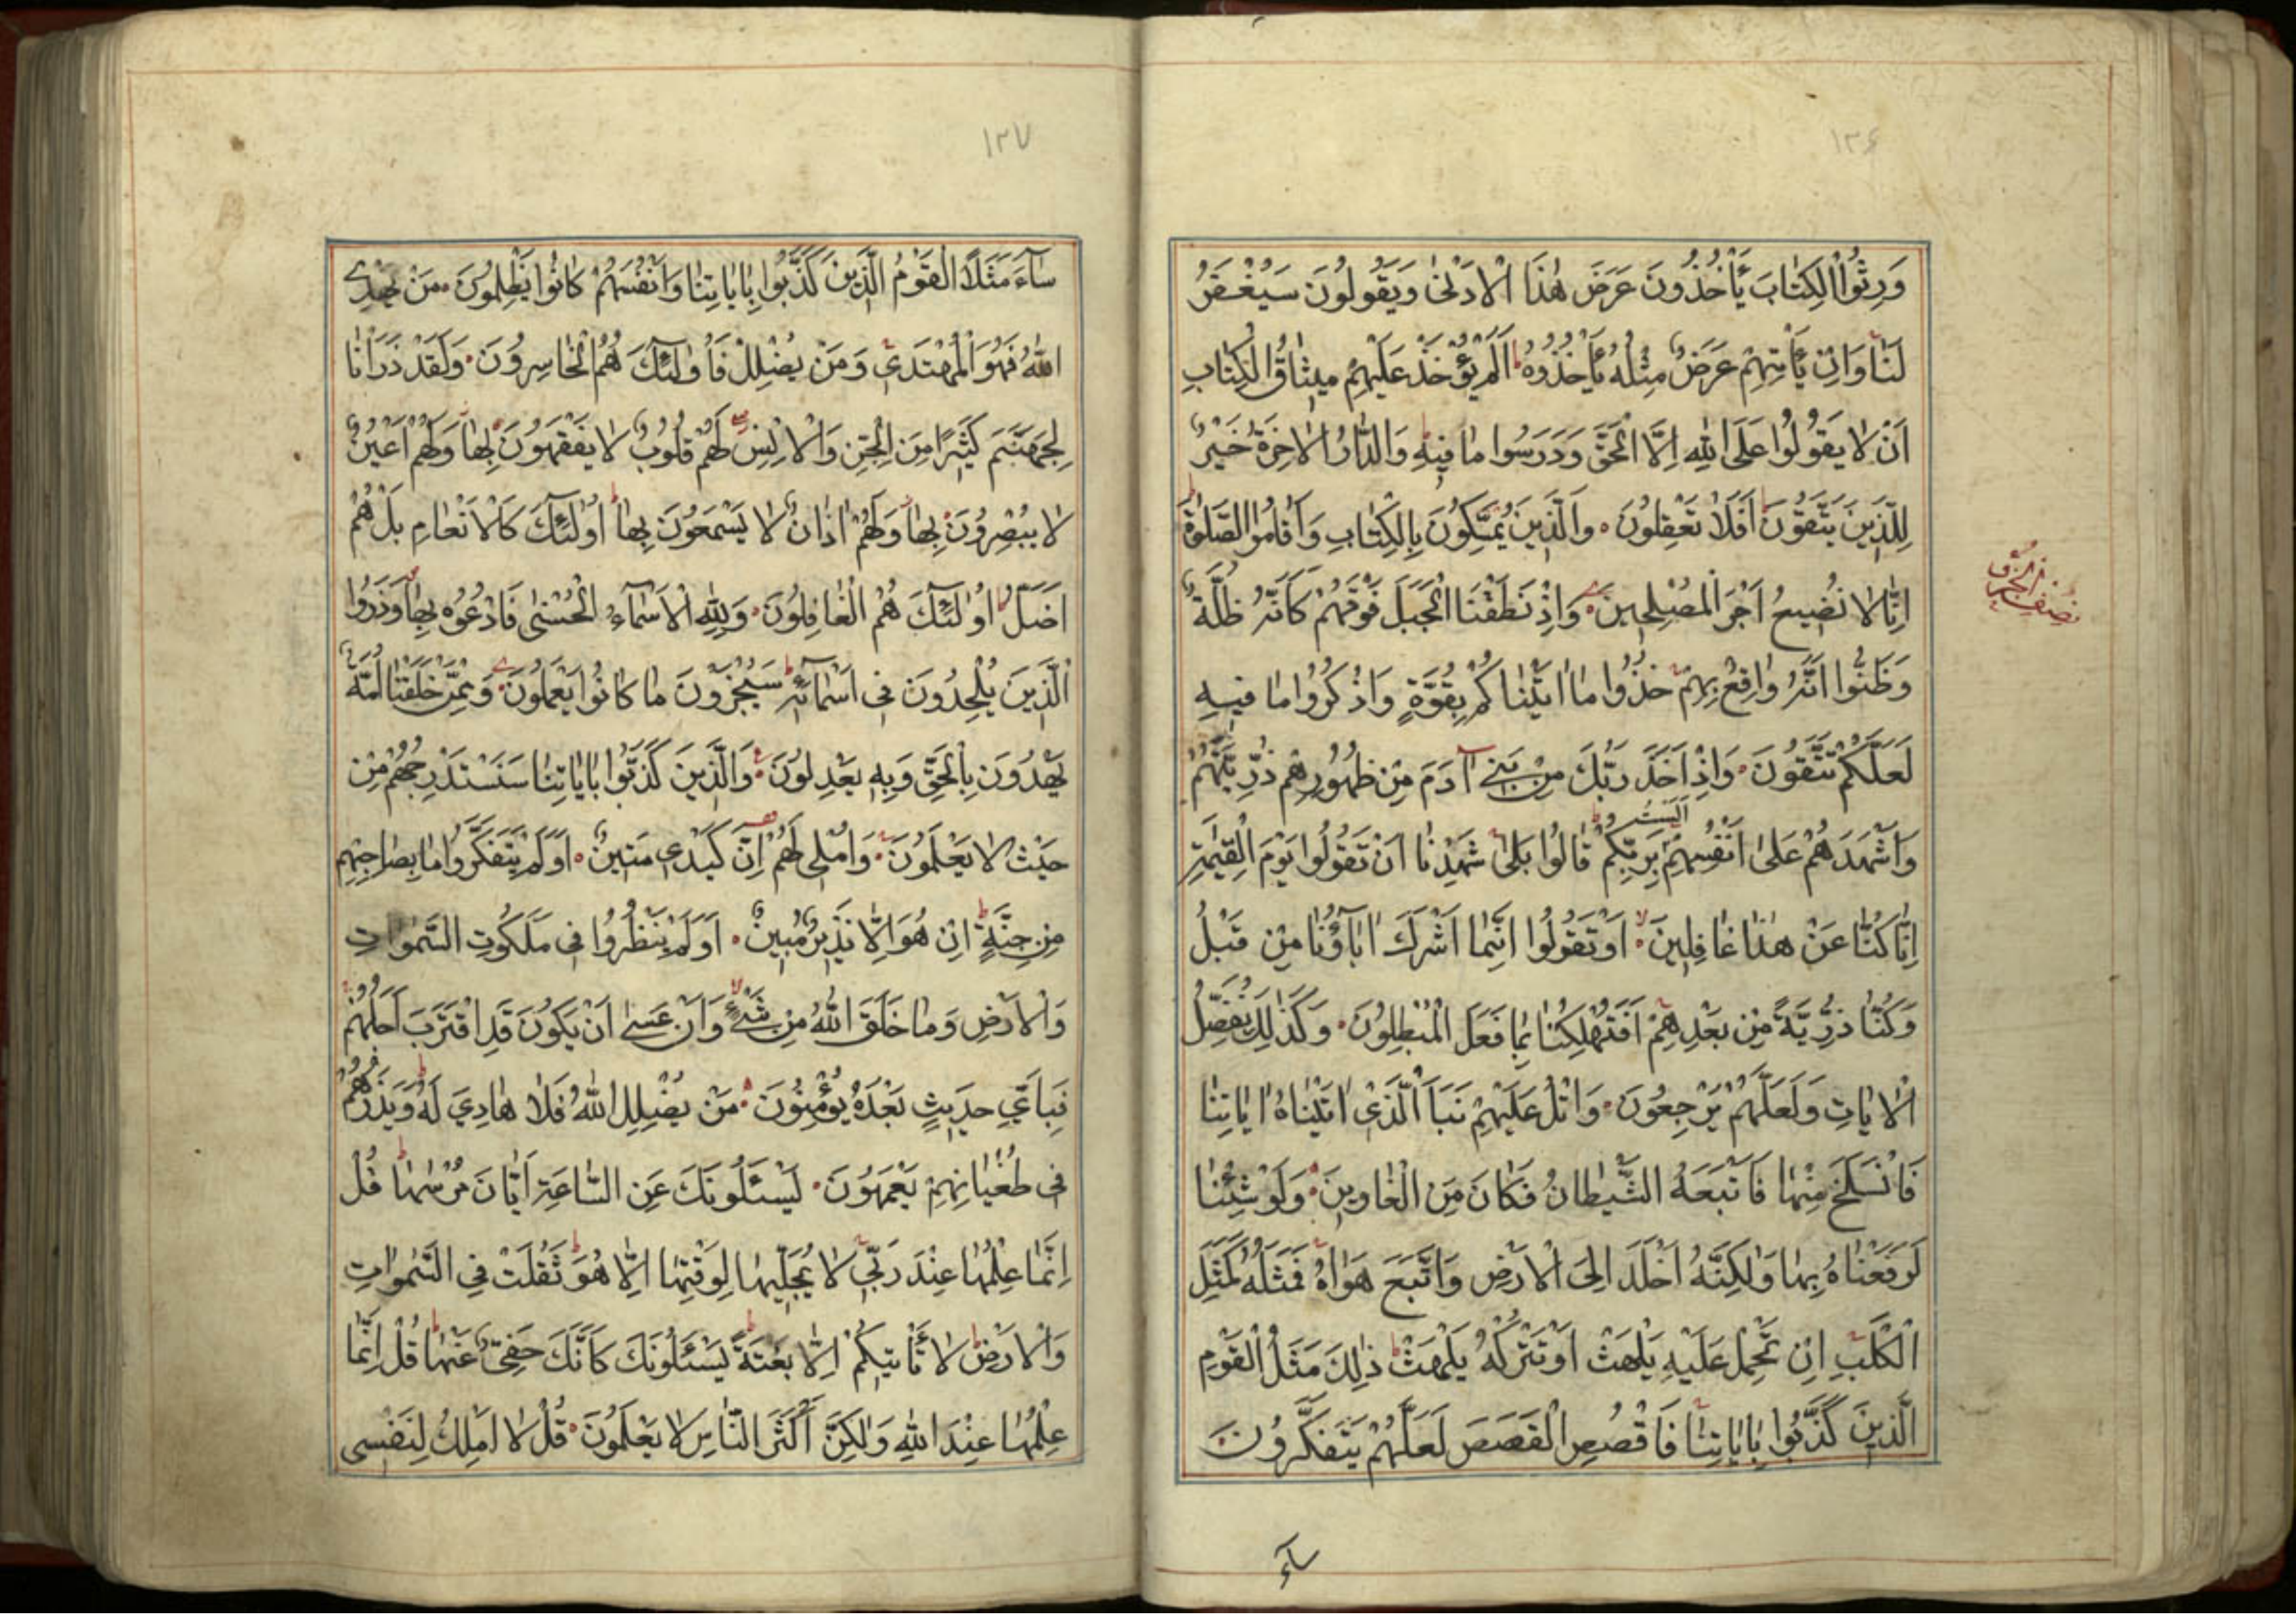 ١٢٦
وَرِثُوا الْكِتَابَ يَأْخُذُونَ عَرَضَ هٰذَا الْاَدْنٰى وَيَقُولُونَ سَيُغْفَرُ
لَنَا وَاِنْ يَأْتِهِمْ عَرَضٌ مِثْلُهُ يَأْخُذُوهُ اَلَمْ يُؤْخَذْ عَلَيْهِمْ مِيثَاقُ الْكِتَابِ
اَنْ لَا يَقُولُوا عَلَى اللّٰهِ اِلَّا الْحَقَّ وَدَرَسُوا مَا فِيهِ وَالدَّارُ الْاٰخِرَةُ خَيْرٌ
لِلَّذِينَ يَتَّقُونَ اَفَلَا تَعْقِلُونَ وَالَّذِينَ يُمَسِّكُونَ بِالْكِتَابِ وَاَقَامُوا الصَّلٰوةَ
اِنَّا لَا نُضِيعُ اَجْرَ الْمُصْلِحِينَ وَاِذْ نَطَقْنَا الْجَبَلَ فَوْقَهُمْ كَاَنَّهُ ظُلَّةٌ
نصف الحزب
وَظَنُّوا اَنَّهُ وَاقِعٌ بِهِمْ خُذُوا مَا اٰتَيْنَاكُمْ بِقُوَّةٍ وَاذْكُرُوا مَا فِيهِ
لَعَلَّكُمْ تَتَّقُونَ وَاِذْ اَخَذَ رَبُّكَ مِنْ بَنِي اٰدَمَ مِنْ ظُهُورِهِمْ ذُرِّيَّتَهُمْ
وَاَشْهَدَهُمْ عَلٰى اَنْفُسِهِمْ اَلَسْتُ بِرَبِّكُمْ قَالُوا بَلٰى شَهِدْنَا اَنْ تَقُولُوا يَوْمَ الْقِيٰمَةِ
اِنَّا كُنَّا عَنْ هٰذَا غَافِلِينَ اَوْ تَقُولُوا اِنَّمَا اَشْرَكَ اٰبَآؤُنَا مِنْ قَبْلُ
وَكُنَّا ذُرِّيَّةً مِنْ بَعْدِهِمْ اَفَتُهْلِكُنَا بِمَا فَعَلَ الْمُبْطِلُونَ وَكَذٰلِكَ نُفَصِّلُ
الْاٰيَاتِ وَلَعَلَّهُمْ يَرْجِعُونَ وَاتْلُ عَلَيْهِمْ نَبَاَ الَّذِي اٰتَيْنَاهُ اٰيَاتِنَا
فَانْسَلَخَ مِنْهَا فَاَتْبَعَهُ الشَّيْطَانُ فَكَانَ مِنَ الْغَاوِينَ وَلَوْ شِئْنَا
لَرَفَعْنَاهُ بِهَا وَلٰكِنَّهُ اَخْلَدَ اِلَى الْاَرْضِ وَاتَّبَعَ هَوٰاهُ فَمَثَلُهُ كَمَثَلِ
الْكَلْبِ اِنْ تَحْمِلْ عَلَيْهِ يَلْهَثْ اَوْ تَتْرُكْهُ يَلْهَثْ ذٰلِكَ مَثَلُ الْقَوْمِ
الَّذِينَ كَذَّبُوا بِاٰيَاتِنَا فَاقْصُصِ الْقَصَصَ لَعَلَّهُمْ يَتَفَكَّرُونَ
سَآءَ
١٢٧
سَآءَ مَثَلًا الْقَوْمُ الَّذِينَ كَذَّبُوا بِاٰيَاتِنَا وَاَنْفُسَهُمْ كَانُوا يَظْلِمُونَ مَنْ يَهْدِي
اللّٰهُ فَهُوَ الْمُهْتَدِي وَمَنْ يُضْلِلْ فَاُولٰٓئِكَ هُمُ الْخَاسِرُونَ وَلَقَدْ ذَرَاْنَا
لِجَهَنَّمَ كَثِيرًا مِنَ الْجِنِّ وَالْاِنْسِ لَهُمْ قُلُوبٌ لَا يَفْقَهُونَ بِهَا وَلَهُمْ اَعْيُنٌ
لَا يُبْصِرُونَ بِهَا وَلَهُمْ اٰذَانٌ لَا يَسْمَعُونَ بِهَا اُولٰٓئِكَ كَالْاَنْعَامِ بَلْ هُمْ
اَضَلُّ اُولٰٓئِكَ هُمُ الْغَافِلُونَ وَلِلّٰهِ الْاَسْمَآءُ الْحُسْنٰى فَادْعُوهُ بِهَا وَذَرُوا
الَّذِينَ يُلْحِدُونَ فِي اَسْمَآئِهِ سَيُجْزَوْنَ مَا كَانُوا يَعْمَلُونَ وَمِمَّنْ خَلَقْنَا اُمَّةٌ
يَهْدُونَ بِالْحَقِّ وَبِهِ يَعْدِلُونَ وَالَّذِينَ كَذَّبُوا بِاٰيَاتِنَا سَنَسْتَدْرِجُهُمْ مِنْ
حَيْثُ لَا يَعْلَمُونَ وَاُمْلِي لَهُمْ اِنَّ كَيْدِي مَتِينٌ اَوَلَمْ يَتَفَكَّرُوا مَا بِصَاحِبِهِمْ
مِنْ جِنَّةٍ اِنْ هُوَ اِلَّا نَذِيرٌ مُبِينٌ اَوَلَمْ يَنْظُرُوا فِي مَلَكُوتِ السَّمٰوَاتِ
وَالْاَرْضِ وَمَا خَلَقَ اللّٰهُ مِنْ شَيْءٍ وَاَنْ عَسٰى اَنْ يَكُونَ قَدِ اقْتَرَبَ اَجَلُهُمْ
فَبِاَيِّ حَدِيثٍ بَعْدَهُ يُؤْمِنُونَ مَنْ يُضْلِلِ اللّٰهُ فَلَا هَادِيَ لَهُ وَيَذَرُهُمْ
فِي طُغْيَانِهِمْ يَعْمَهُونَ يَسْئَلُونَكَ عَنِ السَّاعَةِ اَيَّانَ مُرْسٰهَا قُلْ
اِنَّمَا عِلْمُهَا عِنْدَ رَبِّي لَا يُجَلِّيهَا لِوَقْتِهَا اِلَّا هُوَ ثَقُلَتْ فِي السَّمٰوَاتِ
وَالْاَرْضِ لَا تَأْتِيكُمْ اِلَّا بَغْتَةً يَسْئَلُونَكَ كَاَنَّكَ حَفِيٌّ عَنْهَا قُلْ اِنَّمَا
عِلْمُهَا عِنْدَ اللّٰهِ وَلٰكِنَّ اَكْثَرَ النَّاسِ لَا يَعْلَمُونَ قُلْ لَا اَمْلِكُ لِنَفْسِي